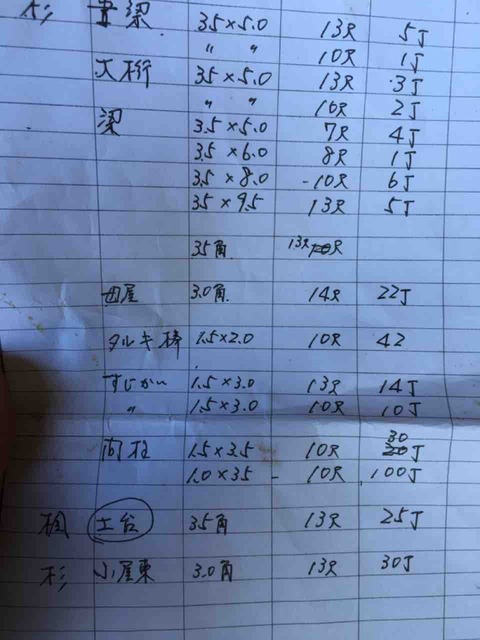 杉 貫梁 3.5×5.0 13尺 5丁
〃 〃 10尺 1丁
大桁 3.5×5.0 13尺 3丁
〃 〃 10尺 2丁
梁 3.5×5.0 7尺 4丁
3.5×6.0 8尺 1丁
3.5×8.0 10尺 6丁
3.5×9.5 13尺 5丁
3.5角 13尺 尺
母屋 3.0角 14尺 22丁
タルキ棒 1.5×2.0 10尺 42
すじかい 1.5×3.0 13尺 14丁
〃 1.5×3.0 10尺 10丁
間柱 1.5×3.5 10尺 30丁
1.0×35 10尺 100丁
桧 土台 35角 13尺 25丁
杉 小屋束 3.0角 13尺 30丁